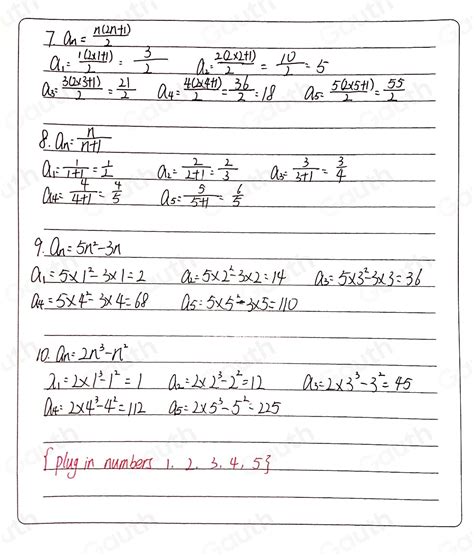 7. an = n(2n+1)/2
a1 = 1(2×1+1)/2 = 3/2 a2 = 2(2×2+1)/2 = 10/2 = 5
a3 = 3(2×3+1)/2 = 21/2 a4 = 4(2×4+1)/2 = 36/2 = 18 a5 = 5(2×5+1)/2 = 55/2
8. an = n/n+1
a1 = 1/1+1 = 1/2 a2 = 2/2+1 = 2/3 a3 = 3/3+1 = 3/4
a4 = 4/4+1 = 4/5 a5 = 5/5+1 = 6/5
9. an = 5n²-3n
a1 = 5×1²-3×1=2 a2 = 5×2²-3×2=14 a3 = 5×3²-3×3=36
a4 = 5×4²-3×4=68 a5 = 5×5²-3×5=110
10. an = 2n³-n²
a1 = 2×1³-1²=1 a2 = 2×2³-2²=12 a3 = 2×3³-3²=45
a4 = 2×4³-4²=112 a5 = 2×5³-5²=225
{plug in numbers 1. 2. 3. 4, 5}
Gauth